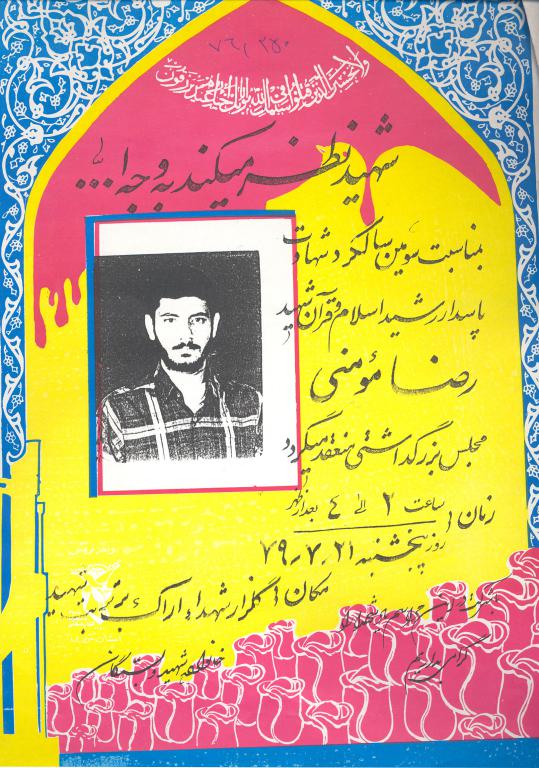 ۷۶۱۳۵۰
ولا تحسبن الذین قتلوا فی سبیل الله امواتا بل احیاء عند ربهم یرزقون
شهید نظر میکند به وجه ا...
بمناسبت سومین سالگرد شهادت
پاسدار رشید اسلام و قرآن شهید
رضا مؤمنی
مجلس بزرگداشتی منعقد میگردد
زمان: ساعت ۲ الی ۴ بعد از ظهر
روز پنجشنبه ۲۱-۷-۷۹
مکان: گلزار شهداء اراک بر تربت شهید
گرامی میداریم
خانواده شهید و بستگان